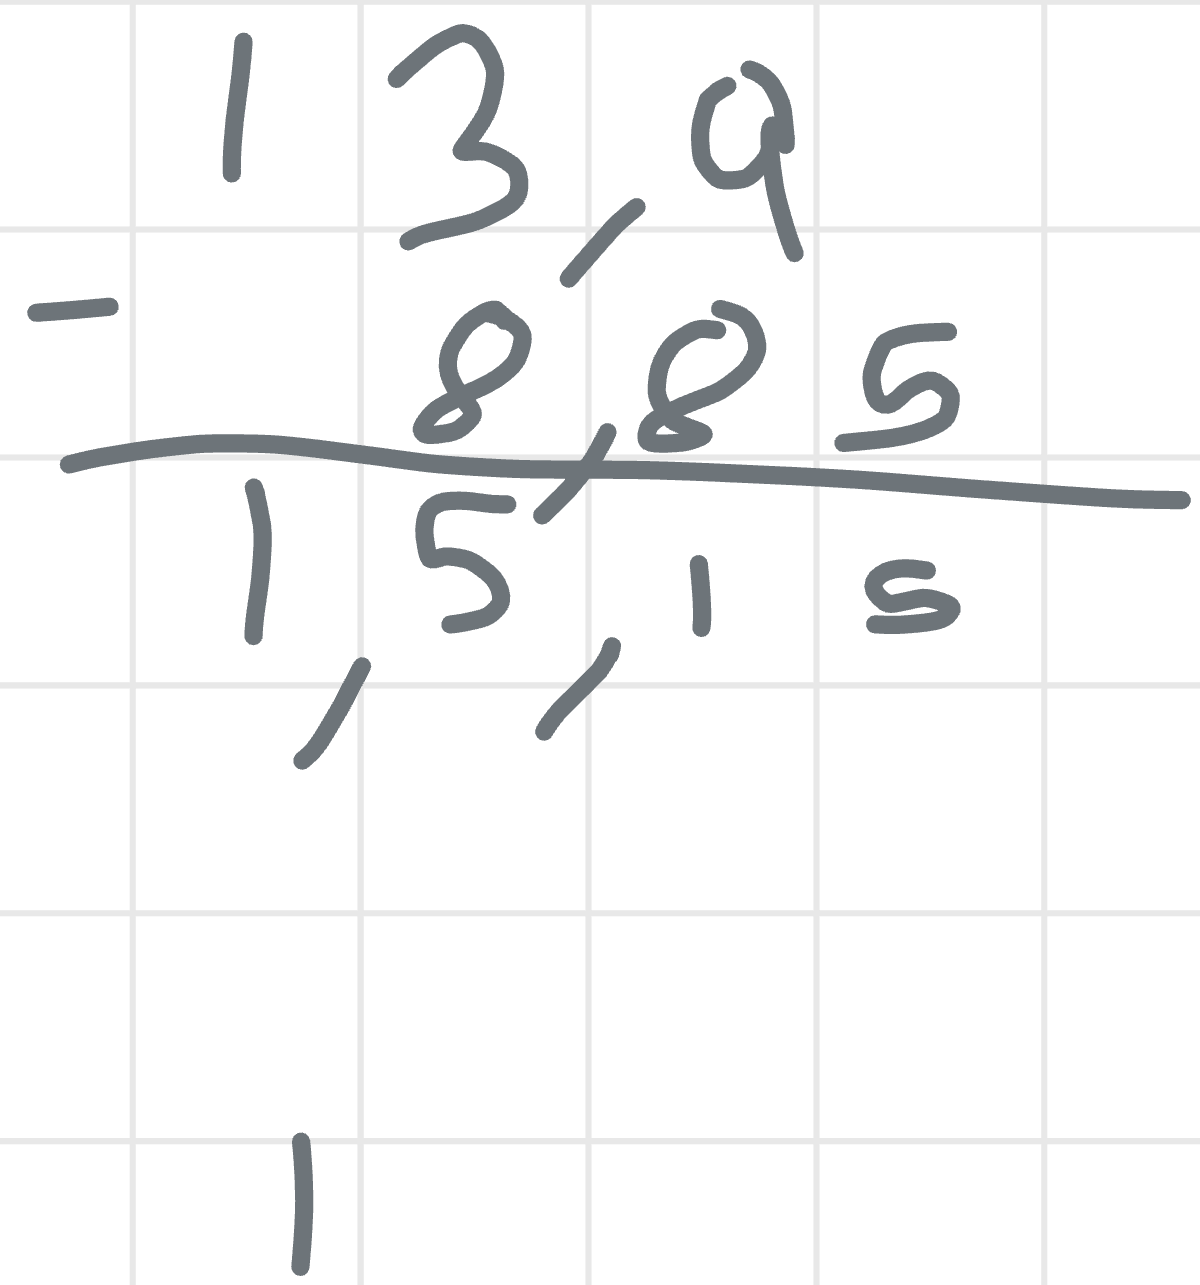 13,9
- 8,85
1,5,15
1